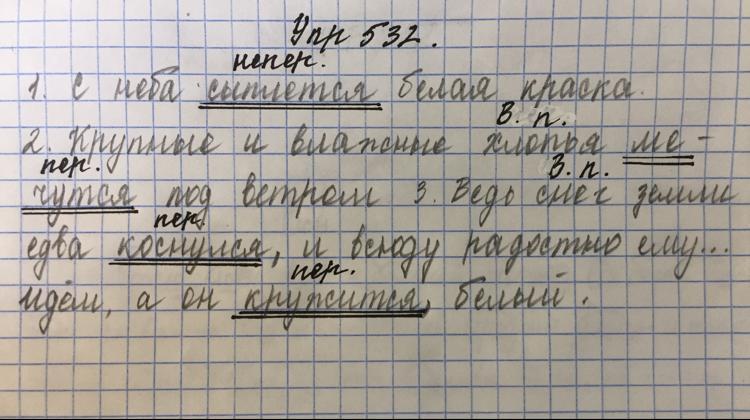 Упр 532.
непер.
1. С неба сыплется белая краска.
В. п.
2. Крупные и влажные хлопья ме-
пер. В. п.
чутся под ветром 3. Ведь снег земли
пер.
едва коснулся, и всюду радостно ему...
пер.
Идём, а он кружится, белый.